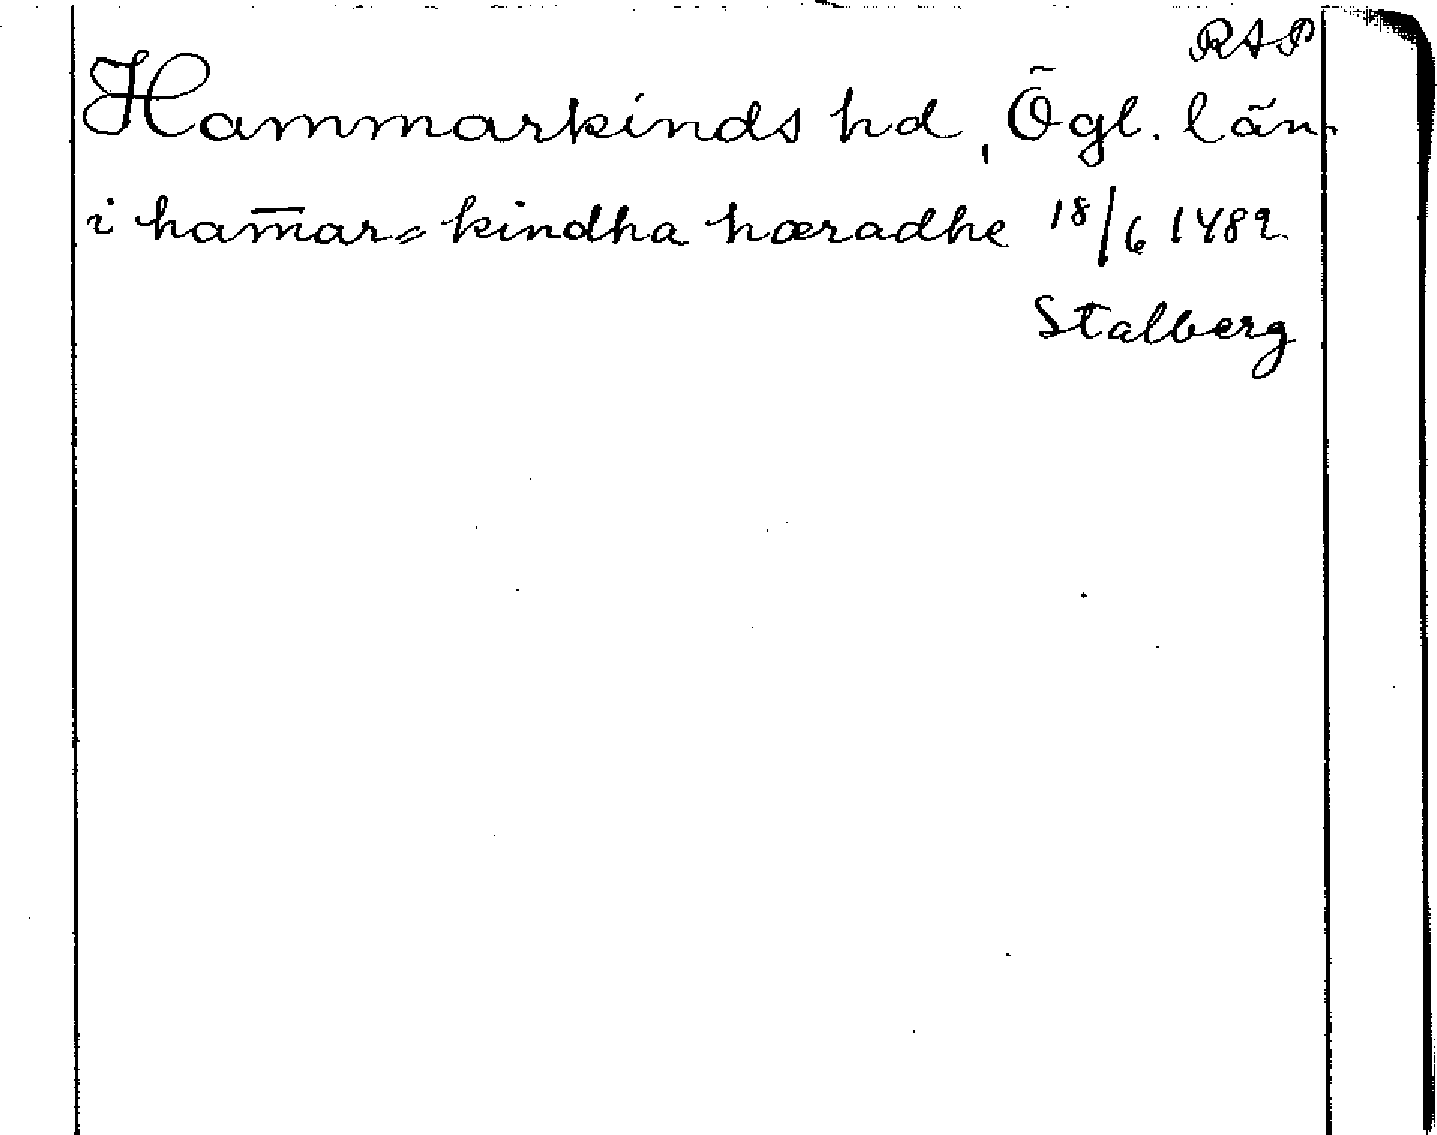 RAP
Hammarkinds hd, Ögl. län
i ham̅ar= kindha hæradhe 18/6 1482
Stalberg